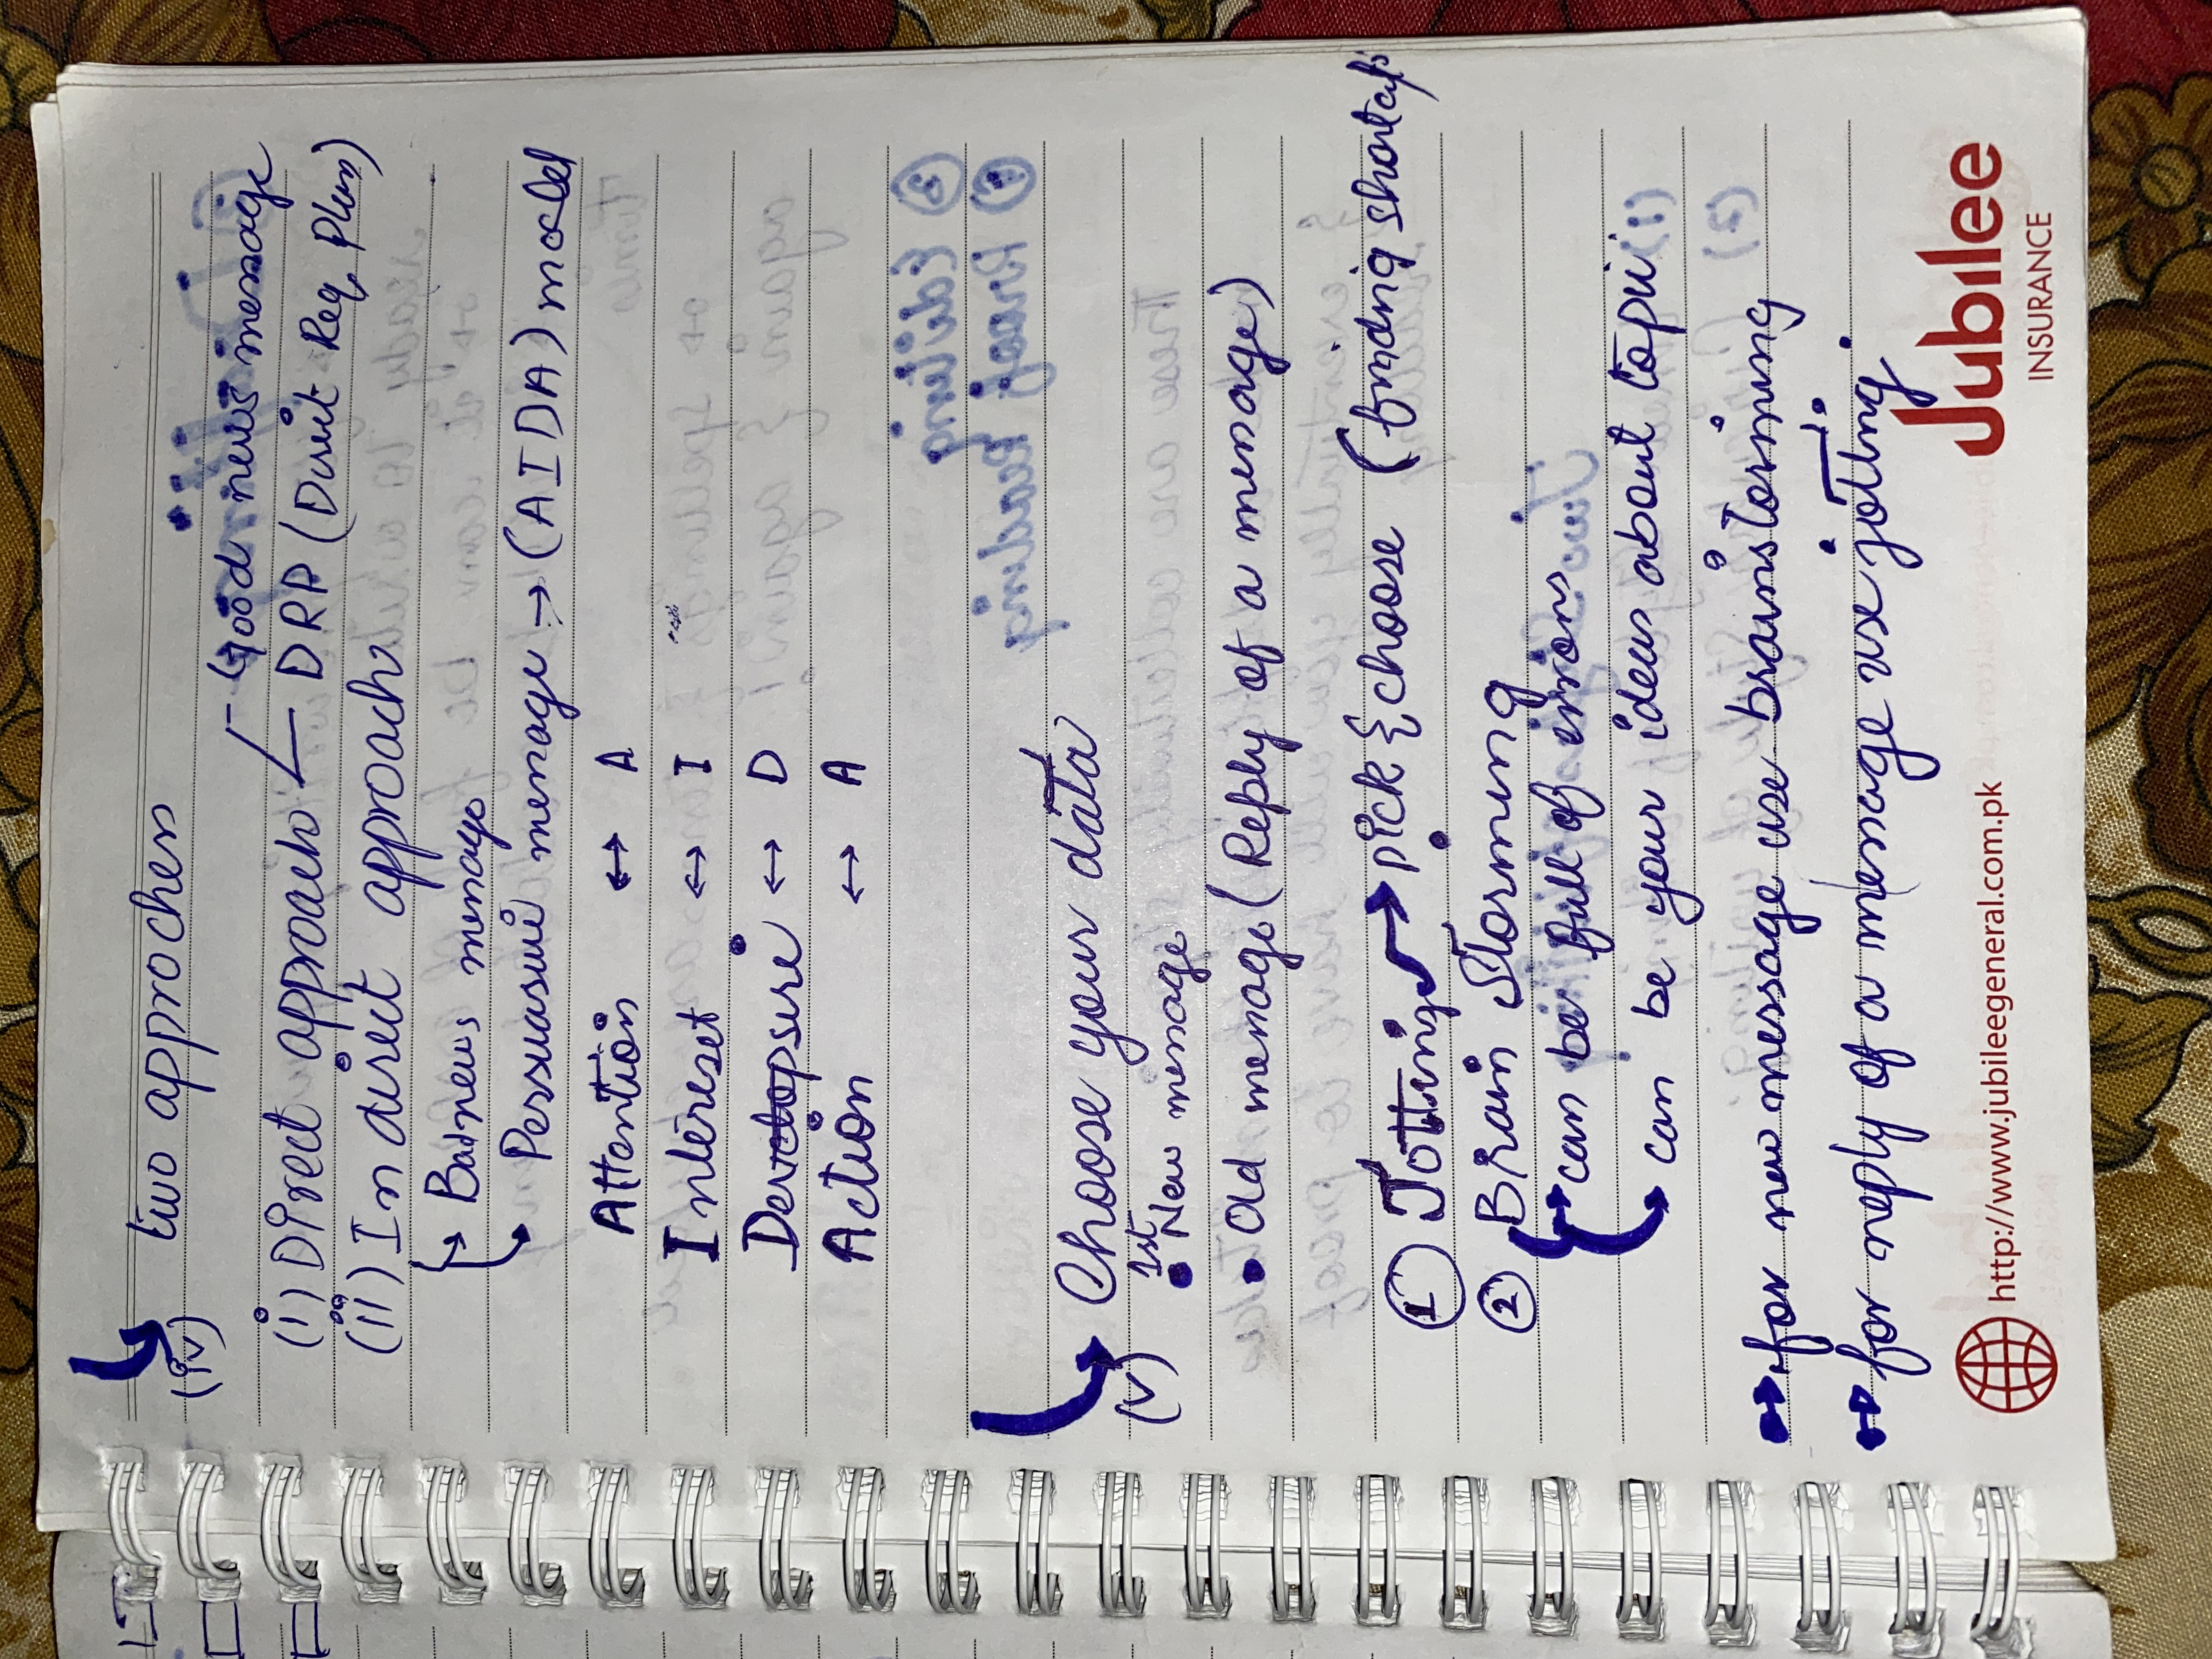 two approches
(iv)
- Good news message
(i) Direct approach - DRP (Direct Req. Plan)
(ii) Indirect approach
Badnews message
Persuasive message → (AIDA) model
Attention ↔ A
Intereset ↔ I
Desire ↔ D
Action ↔ A
Choose your data
(v)
1st
• New message
• Old message (Reply of a message)
① Jotting → pick & choose (finding shortcuts
② Brain Storming
can be full of errors
can be your ideas about topic
for new message use brainstorming
for reply of a message use jotting.
http://www.jubileegeneral.com.pk
Jubilee
INSURANCE